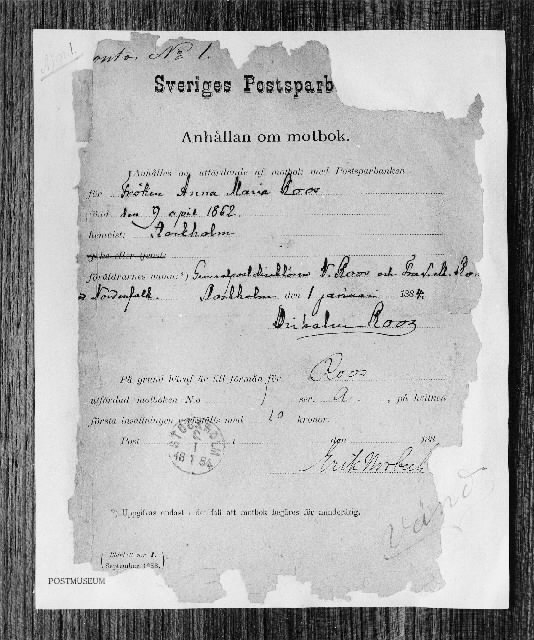 onto. No 1.
Sveriges Postsparb
Anhållan om motbok.
Anhålles om utfärdande af motbok med Postsparbanken
för Fröken Anna Maria Roos
född den 9 april 1862.
hemvist: Stockholm
föräldrarnes namn: *) Generalpostdirektören W. Roos och
Nordenfalk. Stockholm den 1 januari 1884.
Wilhelm Roos
På grund häraf är till förmån för Roos
utfärdad motboken N:o 1 ser. A. , på hvilken
första insättningen verkställts med 10 kronor.
Post den 188
Erik
*) Uppgifves endast i det fall att motbok begäres för minderårig.
vänd
Blankett n:r 1.
(September 1883.)
POSTMUSEUM